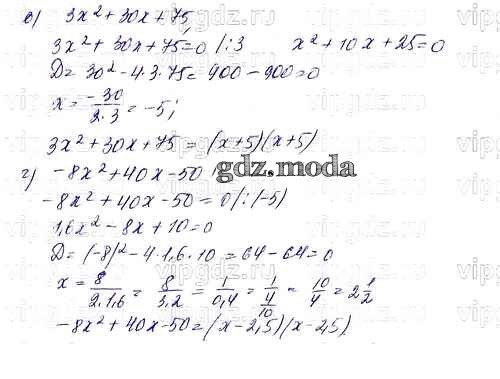 в) 3x²+30x+75
3x²+30x+75=0 /:3 x²+10x+25=0
D=30²-4·3·75=900-900=0
x=-30/2·3=-5;
3x²+30x+75=(x+5)(x+5)
г) -8x²+40x-50
gdz.moda
-8x²+40x-50=0/:(-5)
1,6x²-8x+10=0
D=(-8)²-4·1,6·10=64-64=0
x=8/2·1,6=8/3,2=1/0,4=1/4/10=10/4=2 1/2
-8x²+40x-50=(x-2,5)(x-2,5)
vipgdz.com